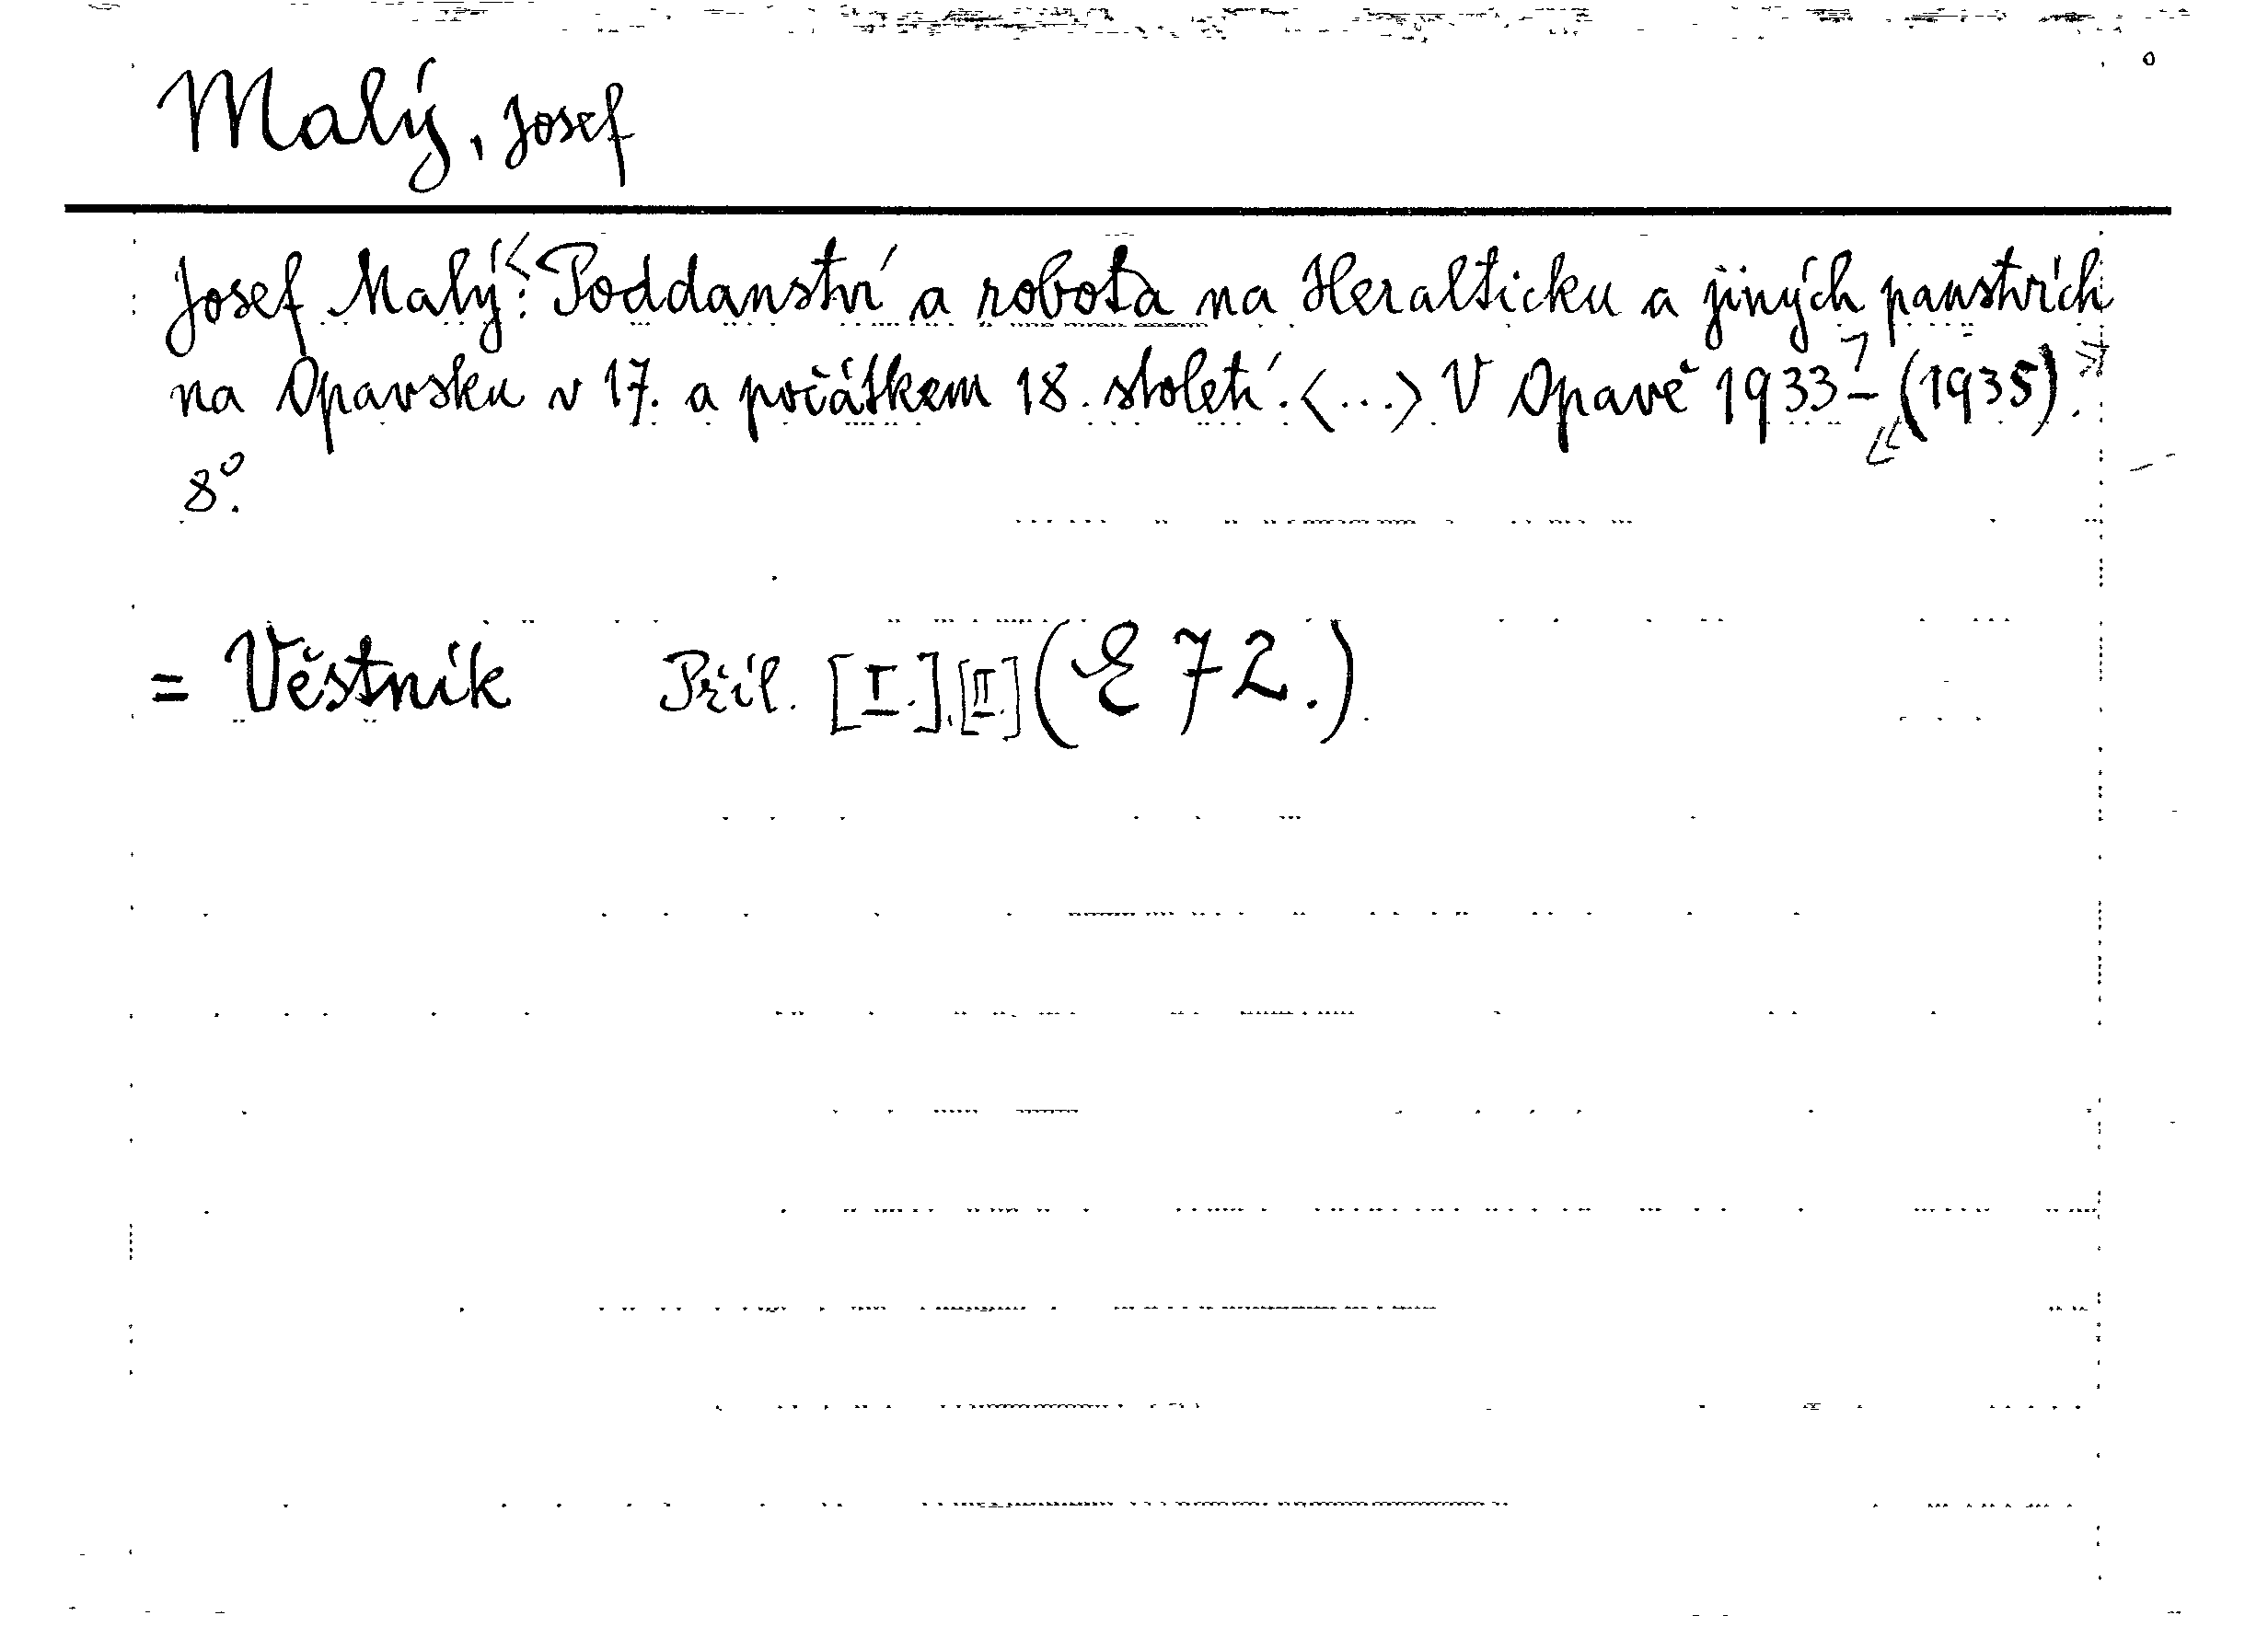 Malý, Josef
Josef Malý: <Poddanství a robota na Heralticku a jiných panstvích
na Opavsku v 17. a počátkem 18. století. <...> V Opavě 1933> – <<(1935)>>.
8°.
= Věstník Příl. [I.],[II.] (E 72.)